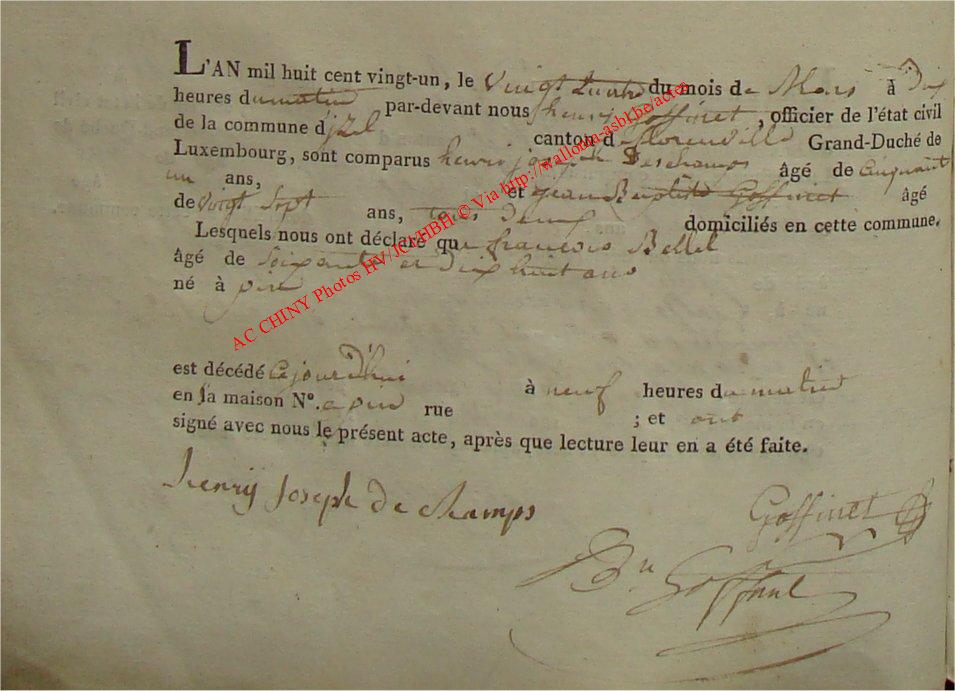 L'AN mil huit cent vingt-un, le vingt quatre du mois de Mars à dix
heures du matin par-devant nous henry Goffinet, officier de l'état civil
de la commune d'jzel canton de florenville Grand-Duché de
Luxembourg, sont comparus henri joseph Deschamps âgé de cinquant
un ans, et jean Baptiste Goffinet âgé
de vingt sept ans, tous deux domiciliés en cette commune.
Lesquels nous ont déclaré que francois Bellel
âgé de soixante et dix huit ans
né à pin
est décédé cejourdhui à neuf heures du matin
en sa maison N°. a pin rue ; et ont
signé avec nous le présent acte, après que lecture leur en a été faite.
henrij Joseph de champs
Goffinet
Goffinet
AC CHINY Photos HV/JCI/HBH © Via http://wallonia-asbl.be/actes